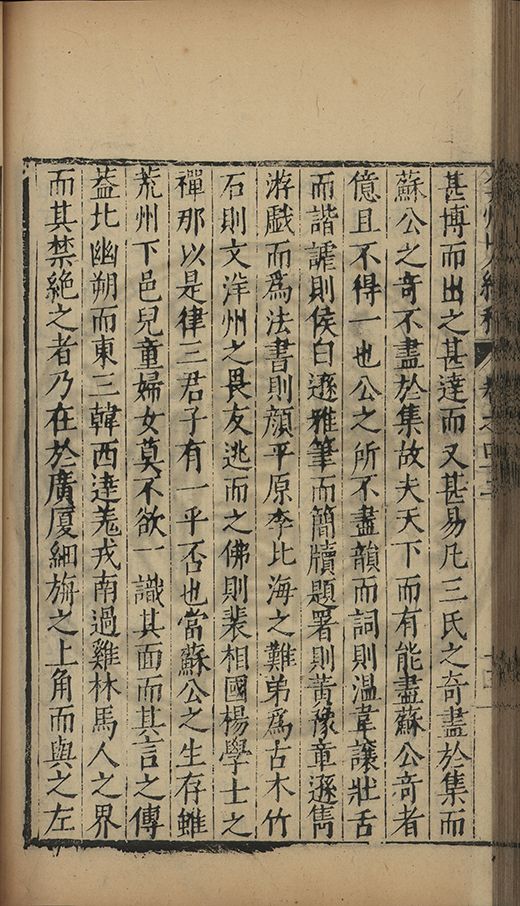 弇州山人續稿 卷之四十二
甚博而出之甚達而又甚易凡三氏之奇盡於集而
蘇公之奇不盡於集故夫天下而有能盡蘇公奇者
億且不得一也公之所不盡韻而詞則温韋讓壯舌
而諧謔則侯白遜雅筆而簡牘題署則黄豫章遜雋
游戲而爲法書則顔平原李北海之難弟爲古木竹
石則文洋州之畏友逃而之佛則裴相國楊學士之
禪那以是律三君子有一乎否也當蘇公之生存雖
荒州下邑兒童婦女莫不欲一識其面而其言之傳
葢比幽朔而東三韓西逹羗戎南過雞林馬人之界
而其禁絶之者乃在於廣厦細旃之上角而與之左